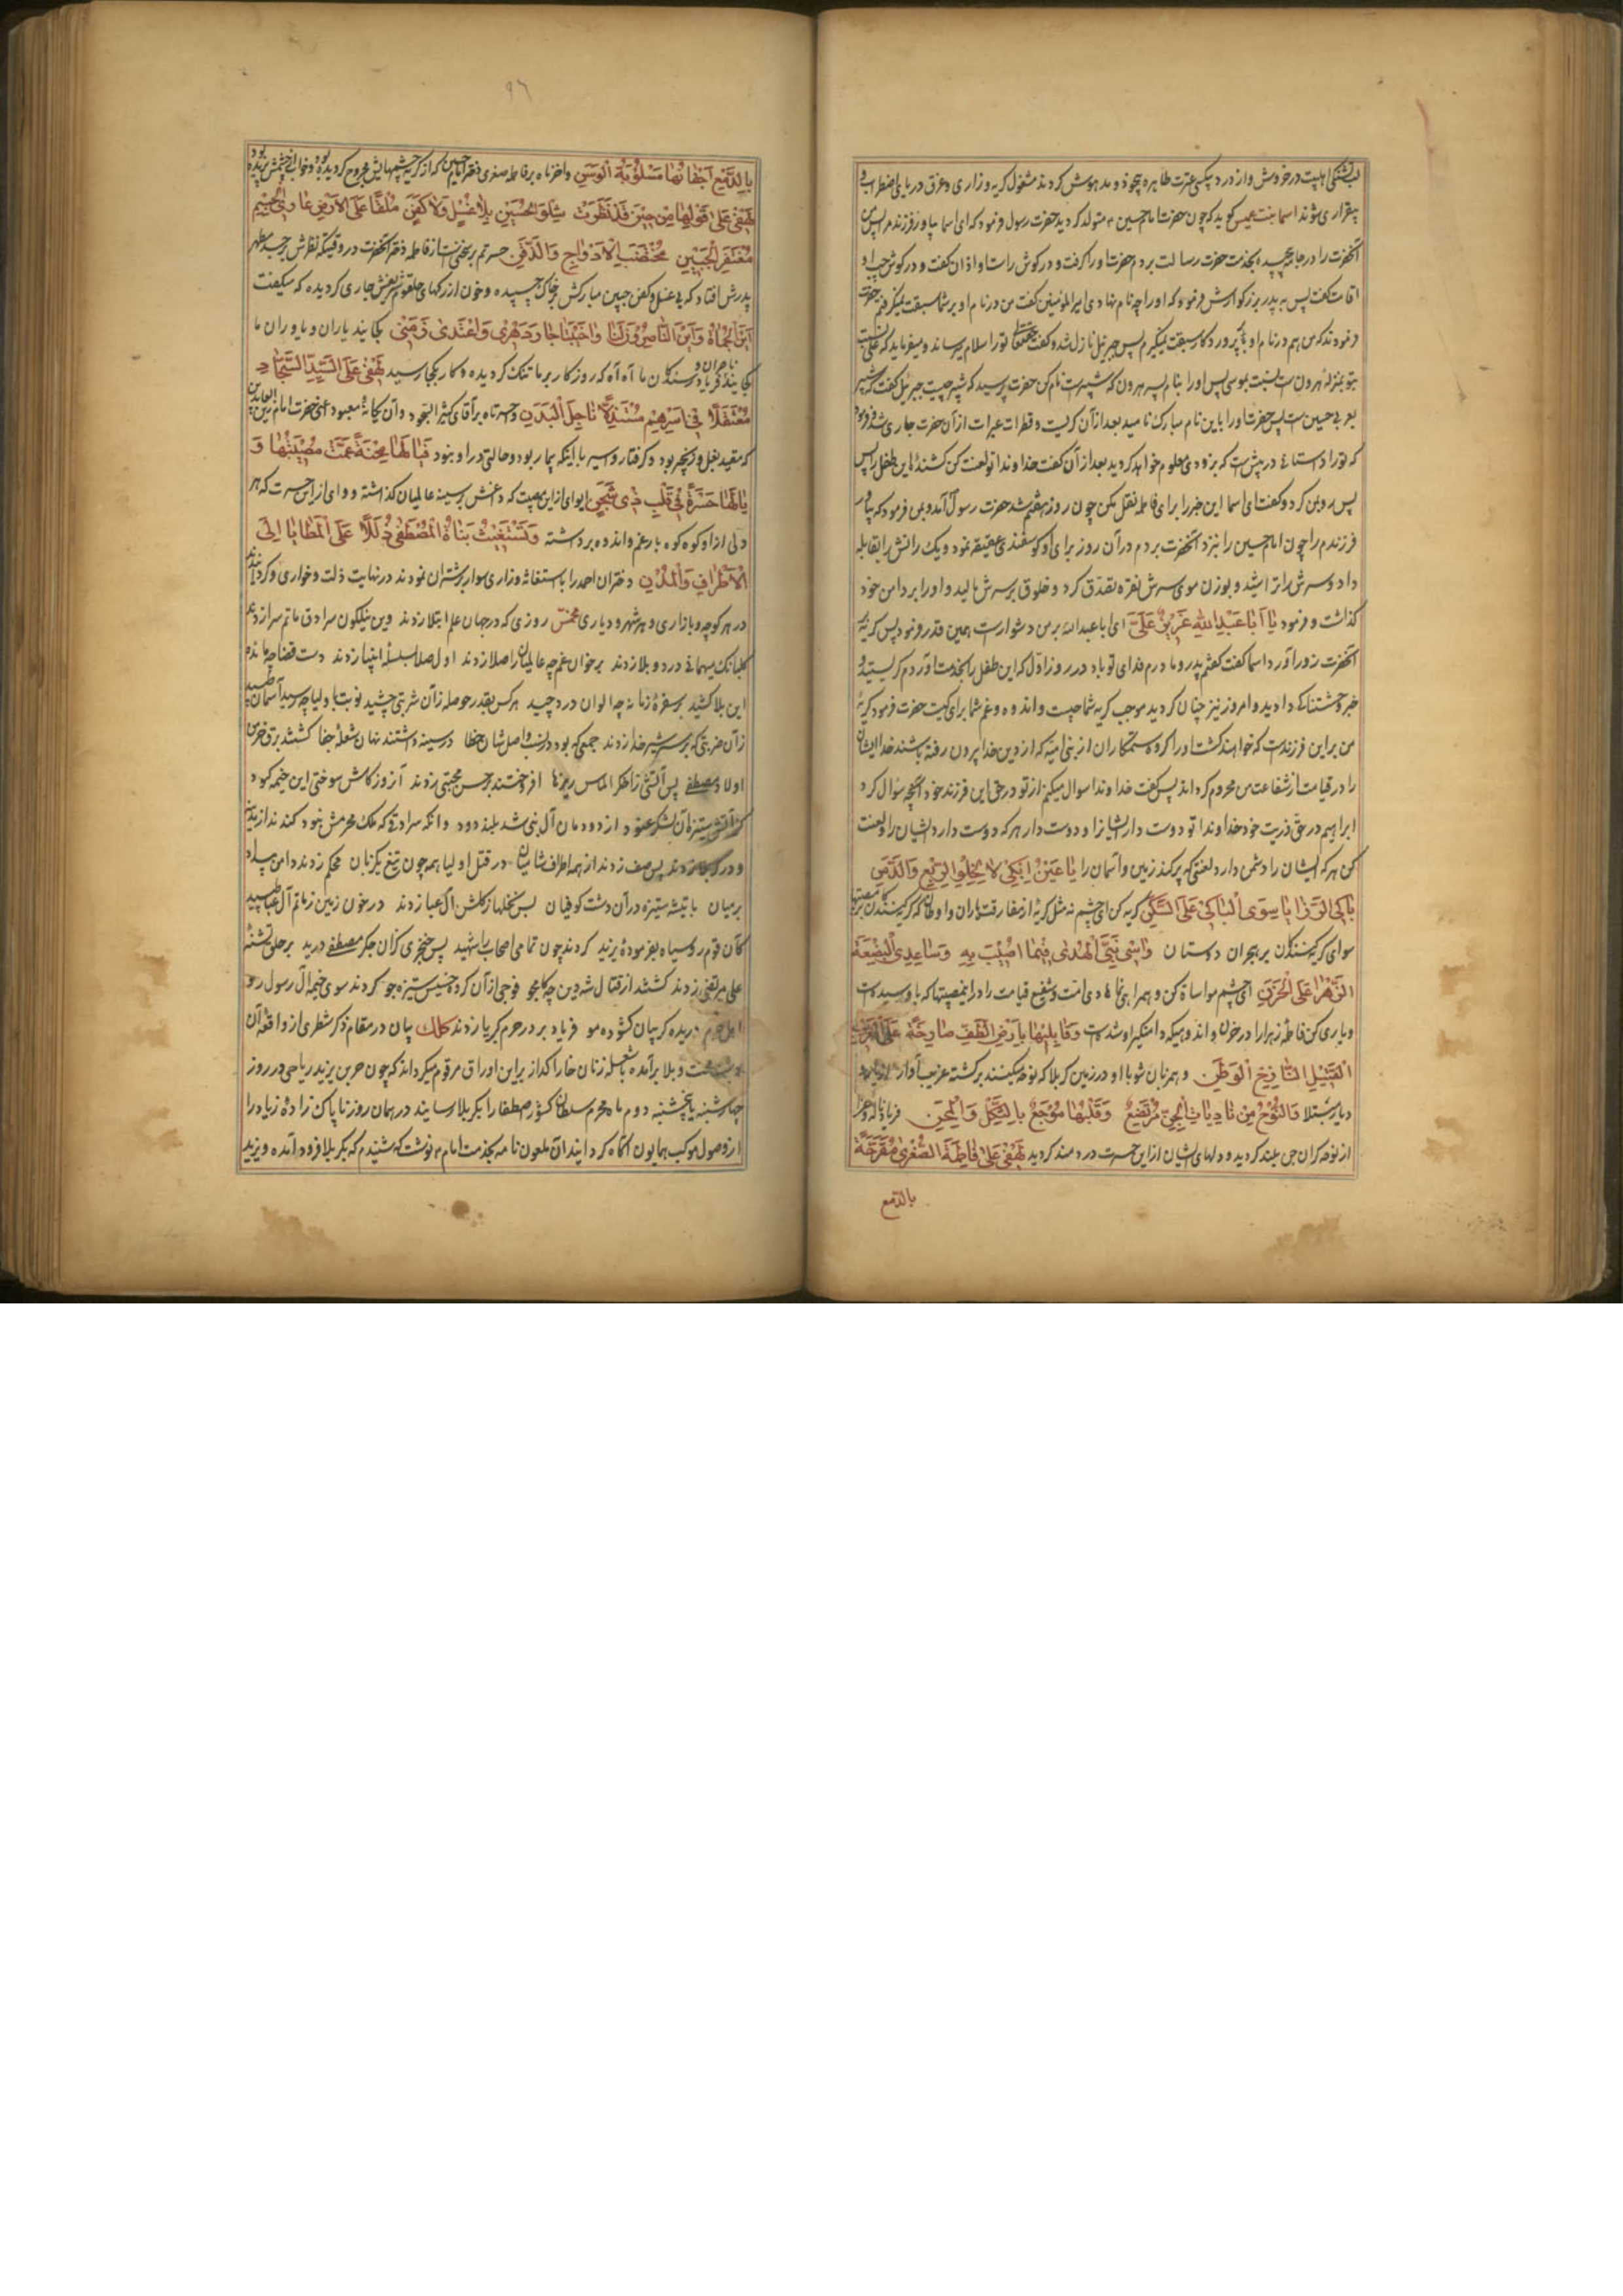 لب تشنگی اهلبیت در خروش و از درد بیکسی عترت طاهره بیخود و مدهوش کردند مشغول کریه و زاری و غرق دریای اضطراب و
بیقراری شوند اسما بنت عمیس کوید که چون حضرت امام حسین ع متولد کردید حضرت رسول فرمود که ای اسما بیاور فرزندم را پس من
آنحضرت را در جامه پیچیده بخدمت حضرت رسالت بردم حضرت او را کرفت و در کوش راست او اذان کفت و در کوش چپ او
اقامت کفت پس به پدر بزرکوارش فرمود که او را چه نام نهادی امیرالمؤمنین کفت من در نام او بر شما سبقت نمیکیرم حضرت
فرمودند که من هم در نام او بر پروردکار سبقت نمیکیرم پس جبرئیل نازل شد و کفت حقتعالی تو را سلام میرساند و میفرماید که علی نسبت
بتو بمنزلهٔ هرون است نسبت بموسی پس او را بنام پسر هرون که شبیر است نام کن حضرت پرسید که شبیر چیست جبرئیل کفت که شبیر
بعربی حسین است پس حضرت او را باین نام مبارک نامید بعد از آن کریست و قطرات عبرات از آن حضرت جاری شد و فرمود
که تو را داستانی در پیش است که بزودی معلوم خواهد کردید بعد از آن کفت خداوندا تو لعنت کن کشندهٔ این طفل را پس
پس رو بمن کرد و کفت ای اسما این خبر را برای فاطمه نقل مکن چون روز هفتم شد حضرت رسول آمد و بمن فرمود که بیاور
فرزندم را چون امام حسین را بنزد آنحضرت بردم در آن روز برای او کوسفندی عقیقه نمود و یک رانش را بقابله
داد و سرش را تراشید و بوزن موی سرش نقره تصدق کرد و خلوق بر سرش مالید و او را بر دامن خود
کذاشت و فرمود یٰا اَبٰا عَبْدِاللهِ عَزیزٌ عَلَیَّ ای ابا عبدالله بر من دشوار است همین قدر فرمود پس کریه
آنحضرت زور آورد اسما کفت کفتم پدر و مادرم فدای تو باد در روز اول که این طفل را بخدمت آوردم کریستید و
خبر وحشتناکی دادید و امروز نیز چنان کردید موجب کریه شما چیست و اندوه و غم شما برای کیست حضرت فرمود کریهٔ
من بر این فرزند است که خواهند کشت او را کروه ستمکاران از بنی امیه که از دین خدا بیرون رفته باشند خدا ایشان
را در قیامت از شفاعت من محروم کرداند پس کفت خداوندا سوال میکنم از تو در حق این فرزند خود آنچه سؤال کرد
ابراهیم در حق ذریت خود خداوندا تو دوست دار ایشانرا و دوست دار هر که دوست دارد ایشان را و لعنت
کن هر که ایشان را دشمن دارد لعنتی که پر کند زمین و آسمان را یٰا عَیْنُ اِبْکی لاٰ لِخِلْوِ الرَّبْعِ وَ الدِّمَنِ
بٰاکِی الرَّزٰایٰا سِوَی الْبٰاکی عَلَی السَّکَنِ کریه کن ای چشم نه مثل کریه از مفارقت یاران و اوطان که کریه کنندکان بر مصیبتها
سوای کریه کنندکان بر هجران دوستان وٰاسی نَبِیَّ الْهُدیٰ فیمٰا اُصیبَ بِهِ وَ سٰاعِدِی الْبَضْعَةَ
الزَّهْرٰا عَلَی الْحَزَنِ ای چشم مواساة کن و همراهی نما هادی امت و شفیع قیامت را در این مصیبتها که باو رسیده است
و یاری کن فاطمه زهرا را در حزن و اندوهیکه دامنکیر او شده است وَ قٰابِلیهٰا بِاَرْضِ الطَّفِّ صٰارِخَةً عَلَی الْغَریبِ
الْقَتیلِ النّٰازِحِ الْوَطَنِ و همزبان شو با او در زمین کربلا که نوحه میکنند بر کشته غریب آواره از دیار
دیار مبتلا وَ النَّوْحُ مِنْ نٰادِبٰاتِ الْجِنِّ مُرْتَفِعٌ وَ قَلْبُهٰا مُوْجَعٌ بِالثَّکْلِ وَ الْمِحَنِ فریاد ناله و عزا
از نوحه کران جن بلند کردید و دلهای ایشان از این حسرت دردمند کردید لَهْفی عَلیٰ فٰاطِمَةَ الصُّغْریٰ مُقَرَّحَةً
بالدّمع
٩٦
بِالدَّمْعِ اَجْفٰانُهٰا مَسْلُوبَةَ الْوَسَنِ واحزناه بر فاطمه صغری دختر امام حسین که از کریه چشمهایش مجروح کردیده بود و خواب از چشمش پریده بود
لَهْفی عَلیٰ قَوْلِهٰا مِنْ حینَ قَدْ نَظَرَتْ شِلْوَ الْحُسَیْنِ بِلاٰ غُسْلٍ وَ لاٰ کَفَنٍ مُلْقًا عَلَی الْاَرْضِ عٰارِی الْجِسْمِ
مُنْعَفِرَ الْجَبینِ مُخْتَضَبَ الْاَوْدٰاجِ وَ الذَّقَنِ حسرتم بر سخنی است از فاطمه دختر آنحضرت در وقتیکه نظرش بر جسد مطهر
پدرش افتاد که بی غسل و کفن جبین مبارکش بر خاک چسبیده و خون از رکهای حلقوم شریفش جاری کردیده که میکفت
اَیْنَ الْحُمٰاةُ وَ اَیْنَ النّٰاصِرُونَ لَنٰا وٰاخَیْبَتٰا جٰارَ دَهْری وَ اعْتَدیٰ زَمَنی کجایند یاران و یاوران ما
کجایند ناصران و فریادرسندکان ما آه آه که روزکار بر ما تنک کردیده و کار بکجا رسید لَهْفی عَلَی السَّیِّدِ السَّجّٰادِ
مُعْتَقَلاً فی اَسْرِهِمْ مُسْتَذِلاًّ نٰاحِلَ الْبَدَنِ و حسرتاه بر آقای کثیر السجود و آن یکانهٔ معبود اعنی حضرت امام زین العابدین
که مقید بغل و زنجیر بود و کرفتار و اسیر با اینکه بیمار بود و حالتی در او نبود فَیٰالَهٰا مِحْنَةً عَمَّتْ مُصیبَتُهٰا وَ
یٰالَهٰا حَسْرَةً فی قَلْبِ ذی شَجَنٍ ایوای از این مصیبت که داغش بر سینه عالمیان کذاشته و وای از این حسرت که هر
دلی از او کوه کوه بار غم و اندوه برداشته وَ تَسْتَغیثُ بَنٰاةُ الْمُصْطَفیٰ ذُلَلاً عَلَی الْمَطٰایٰا اِلَی
الْاَطْرٰافِ وَ الْمُدُنِ دختران احمد را باستغاثه و زاری سوار بر شتران نمودند در نهایت ذلت و خواری و کردانیدند
در هر کوچه و بازاری و هر شهر و دیاری مخمس روزی که در جهان علم ابتلا زدند وین نیلکون سرادق ماتم سرا زدند
کلبانک میهمانی درد و بلا زدند بر خوان غم چه عالمیان را صلا زدند اول صلا بسلسلهٔ انبیا زدند دست قضا چه مائدهٔ
این بلا کشید بر سفرهٔ زمانه چه الوان درد چید هر کس بقدر حوصله زآن شربتی چشید نوبت باولیا چه رسید آسمان طپید
زآن ضربتی که بر سر شیر خدا زدند جمعی که بود در نسب و اصل شان خطا در سینه داشتند نهان شعلهٔ جفا کشتند برق خرمن
اولاد مصطفی پس آتشی ز اخکر الماس ریزها افروختند بر حسن مجتبی زدند آنروز کاش سوختی این خیمه کبود
کز آتش ستیزهٔ آن لشکر عنود از دودمان آل نبی شد بلند دود وانکه سرادقی که ملک محرمش نبود کندند از مدینه
و در کربلا زدند پس صف زدند از همه اطراف شامیان در قتل اولیا همه چون تیغ یکزبان محکم زدند دامن بیداد
بر میان با تیشه ستیزه در آن دشت کوفیان بس نخلها ز کلشن آل عبا زدند در خون زمین ز ماتم آل عبا طپید
کآن قوم رو سیاه بفرمودهٔ یزید کردند چون تمامی اصحاب را شهید پس خنجری کزآن جکر مصطفی درید بر حلق تشنهٔ
علی مرتضی زدند کشتند از قتال شه دین چه کامجو فوجی از آن کروه خسیس ستیزه جو کردند سوی خیمه آل رسول رو
اهل حرم دریده کریبان کشوده مو فریاد بر در حرم کبریا زدند کلک بیان در مقام ذکر شطری از واقعهٔ آن
دشت و بلا برآمده باشعله زنان خارا کداز بر این اوراق مرقوم میکرداند که چون حر بن یزید ریاحی در روز
چهارشنبه یا پنجشنبه دوم ماه محرم سلطان کشور اصطفا را بکربلا رسانید در همان روز ناپاک زاده زیاد را
از وصول موکب همایون آکاه کردانید آن ملعون نامه بخدمت امام ع نوشت که شنیدم که بکربلا فرود آمده و یزید